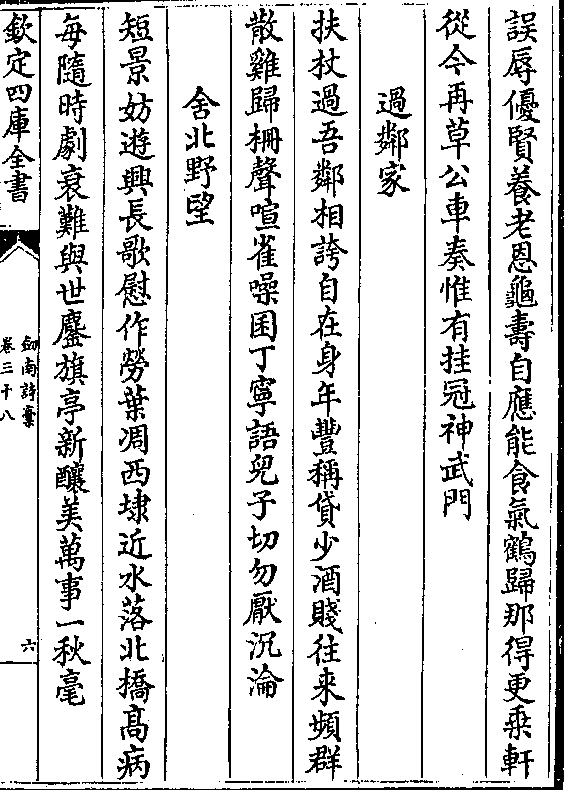 誤辱優賢養老恩龜壽自應能食氣鶴歸那得更乗軒
從今再草公車奏惟有挂冠神武門
過鄰家
扶杖過吾鄰相誇自在身年豐稱貸少酒賤往来頻群
散雞歸柵聲喧雀噪囷丁寧語兒子切勿厭沉淪
舍北野望
短景妨遊興長歌慰作勞葉凋西埭近水落北橋髙病
每隨時劇衰難與世鏖旗亭新釀美萬事一秋毫
欽定四庫全書
劒南詩藁
卷三十八
六